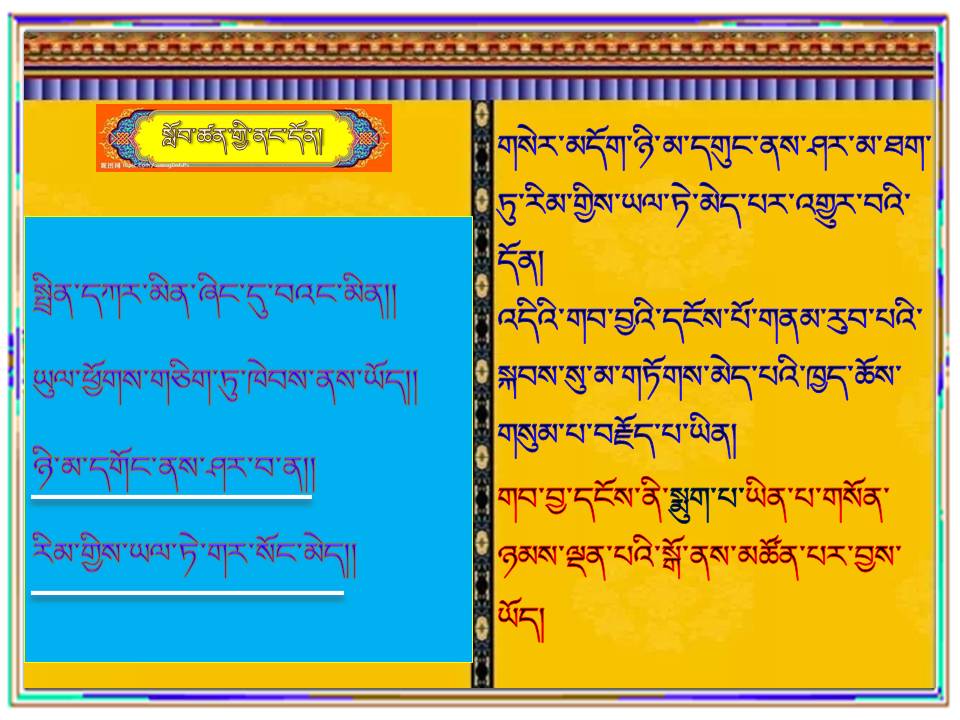 སློབ་ཚན་གྱི་ནང་དོན།
སྤྲིན་དཀར་མིན་ཞིང་དུ་བའང་མིན།།
ཡུལ་ཕྱོགས་གཅིག་ཏུ་ཁེབས་ནས་ཡོད།།
ཉི་མ་དགོང་ནས་ཤར་བ་ན།།
རིམ་གྱིས་ཡལ་ཏེ་གར་སོང་མེད།།
གསེར་མདོག་ཉི་མ་དགུང་ནས་ཤར་མ་ཐག་
ཏུ་རིམ་གྱིས་ཡལ་ཏེ་མེད་པར་འགྱུར་བའི་
དོན།
འདིའི་གབ་བྱའི་དངོས་པོ་གནམ་རུབ་པའི་
སྐབས་སུ་མ་གཏོགས་མེད་པའི་ཁྱད་ཆོས་
གསུམ་པ་བརྗོད་པ་ཡིན།
གབ་བྱ་དངོས་ནི་སྨུག་པ་ཡིན་པ་གསོན་
ཉམས་ལྡན་པའི་སྒོ་ནས་མཚོན་པར་བྱས་
ཡོད།